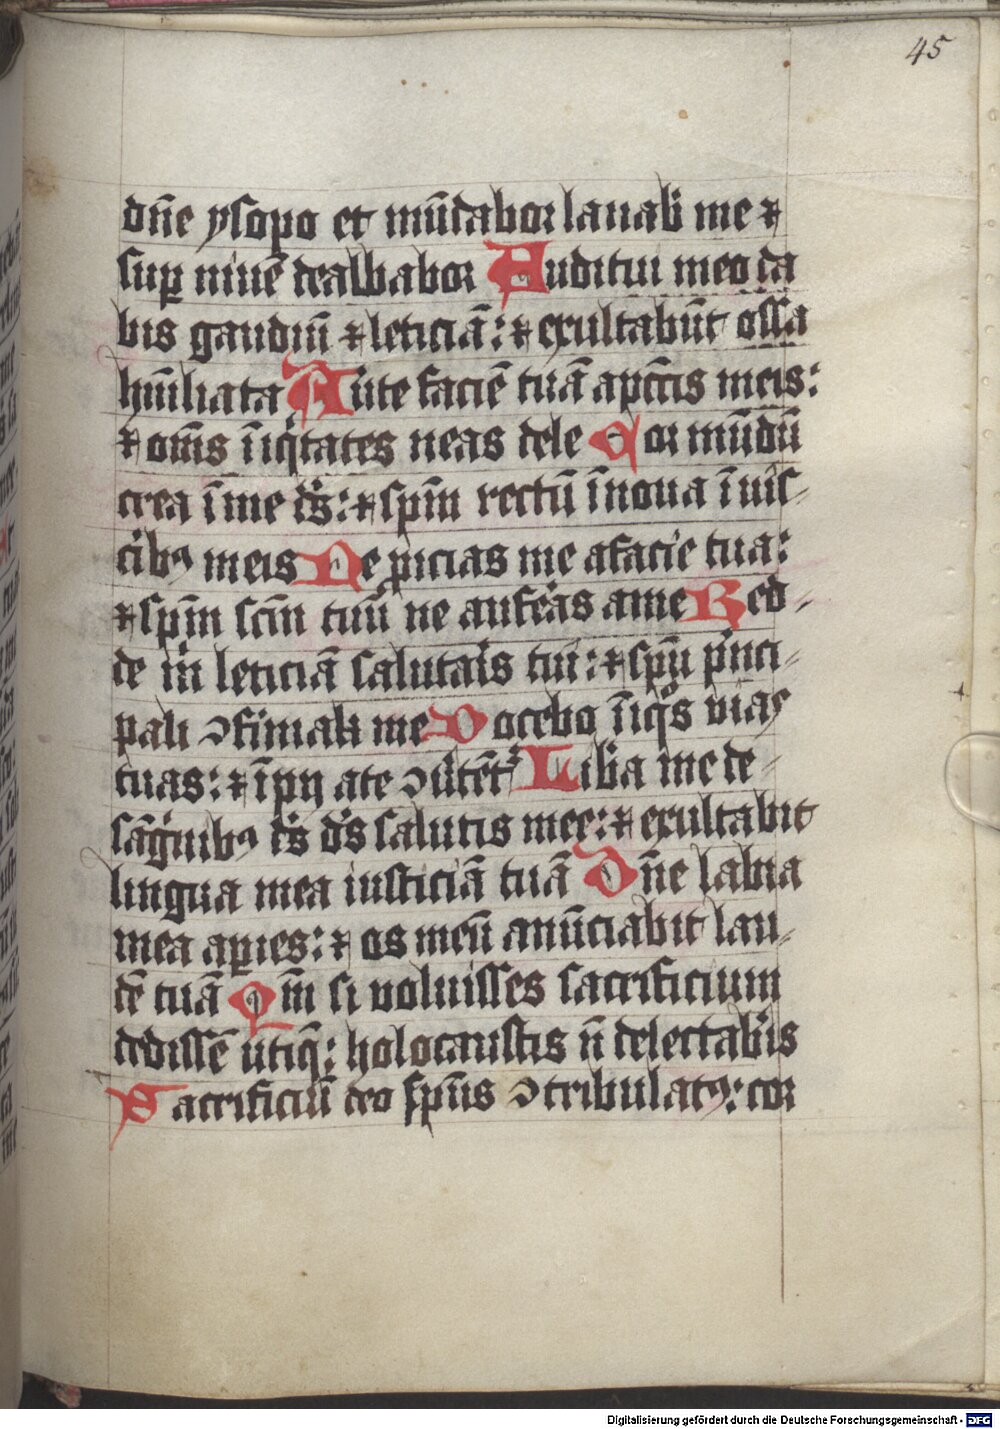 45
dn̄e ysopo et mūdabor lauab̄ me ⁊
suꝑ niuē dealbabor Auditui meo da
bis gaudiū ⁊ leticiā: ⁊ exultabūt ossa
hūiliata Auͤte faciē tuā a pctīs meis:
⁊ om̄s īiqͥtates meas dele Cor mūdū
crea ī me ds̄: ⁊ spm̄ rectū īnoua ī uis-
cibꝰ meis Ne ꝓicias me a facie tua:
⁊ spm̄ scm̄ tuū ne auferas a me Red-
de m̄ leticiā salutar̄s tui: ⁊ spū pͥnci-
pali ↄfirma me Docebo īiqͦs vias
tuas: ⁊ īpij ad te ↄuertēt̛ Lib̄a me de-
sāgͥnibꝰ ds̄ ds̄ salutis mee: ⁊ exultabit
lingua mea iusticiā tuā Dn̄e labia
mea aꝑies: ⁊ os meū anūciabit lau-
dē tuā Qm̄ si voluisses sacrificium
dedissē utiqꝫ: holocaustis n̄ delectab̄is
Sacrificiū deo spūs ↄtribulatꝰ: cor
Digitalisierung gefördert durch die Deutsche Forschungsgemeinschaft - DFG